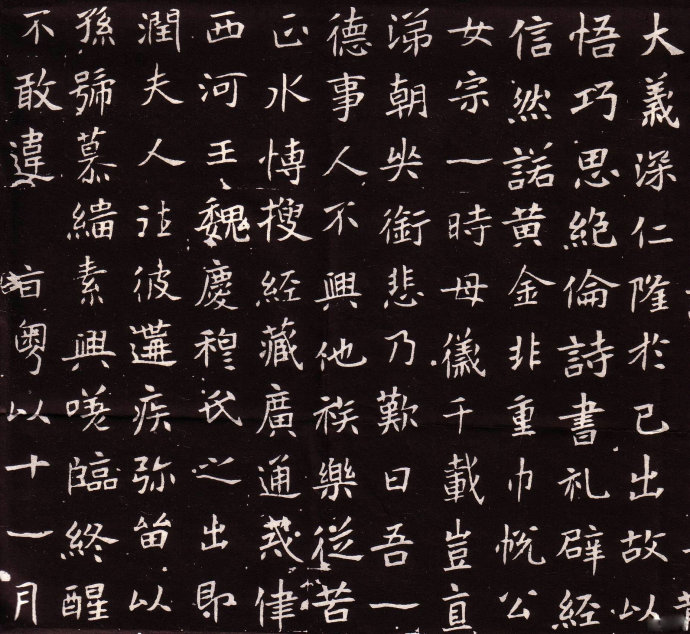 大義深仁隆於己出故以
悟巧思絶倫詩書礼辟経
信然諾黄金非重巾帨公
女宗一時母儀千載豈直
涕朝銜悲乃歎曰吾一
德事人不興他族樂從苦
正水博搜経藏廣通戒律
西河王魏慶穆氏之出即
潤夫人彼遘疾弥留以
孫號慕緇素興嗟臨終醒
不敢違 旨粤以十一月